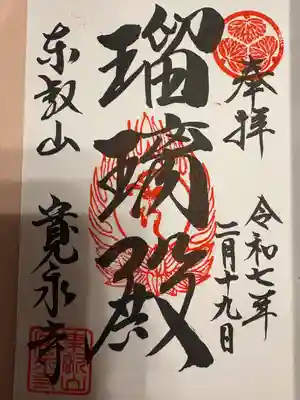 奉拝
令和七年
二月十九日
瑠璃殿
東叡山
寛永寺